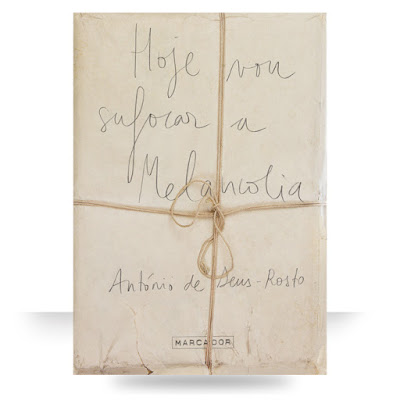 Hoje vou
sufocar a
Melancolia
António de Deus-Rosto
MARCADOR